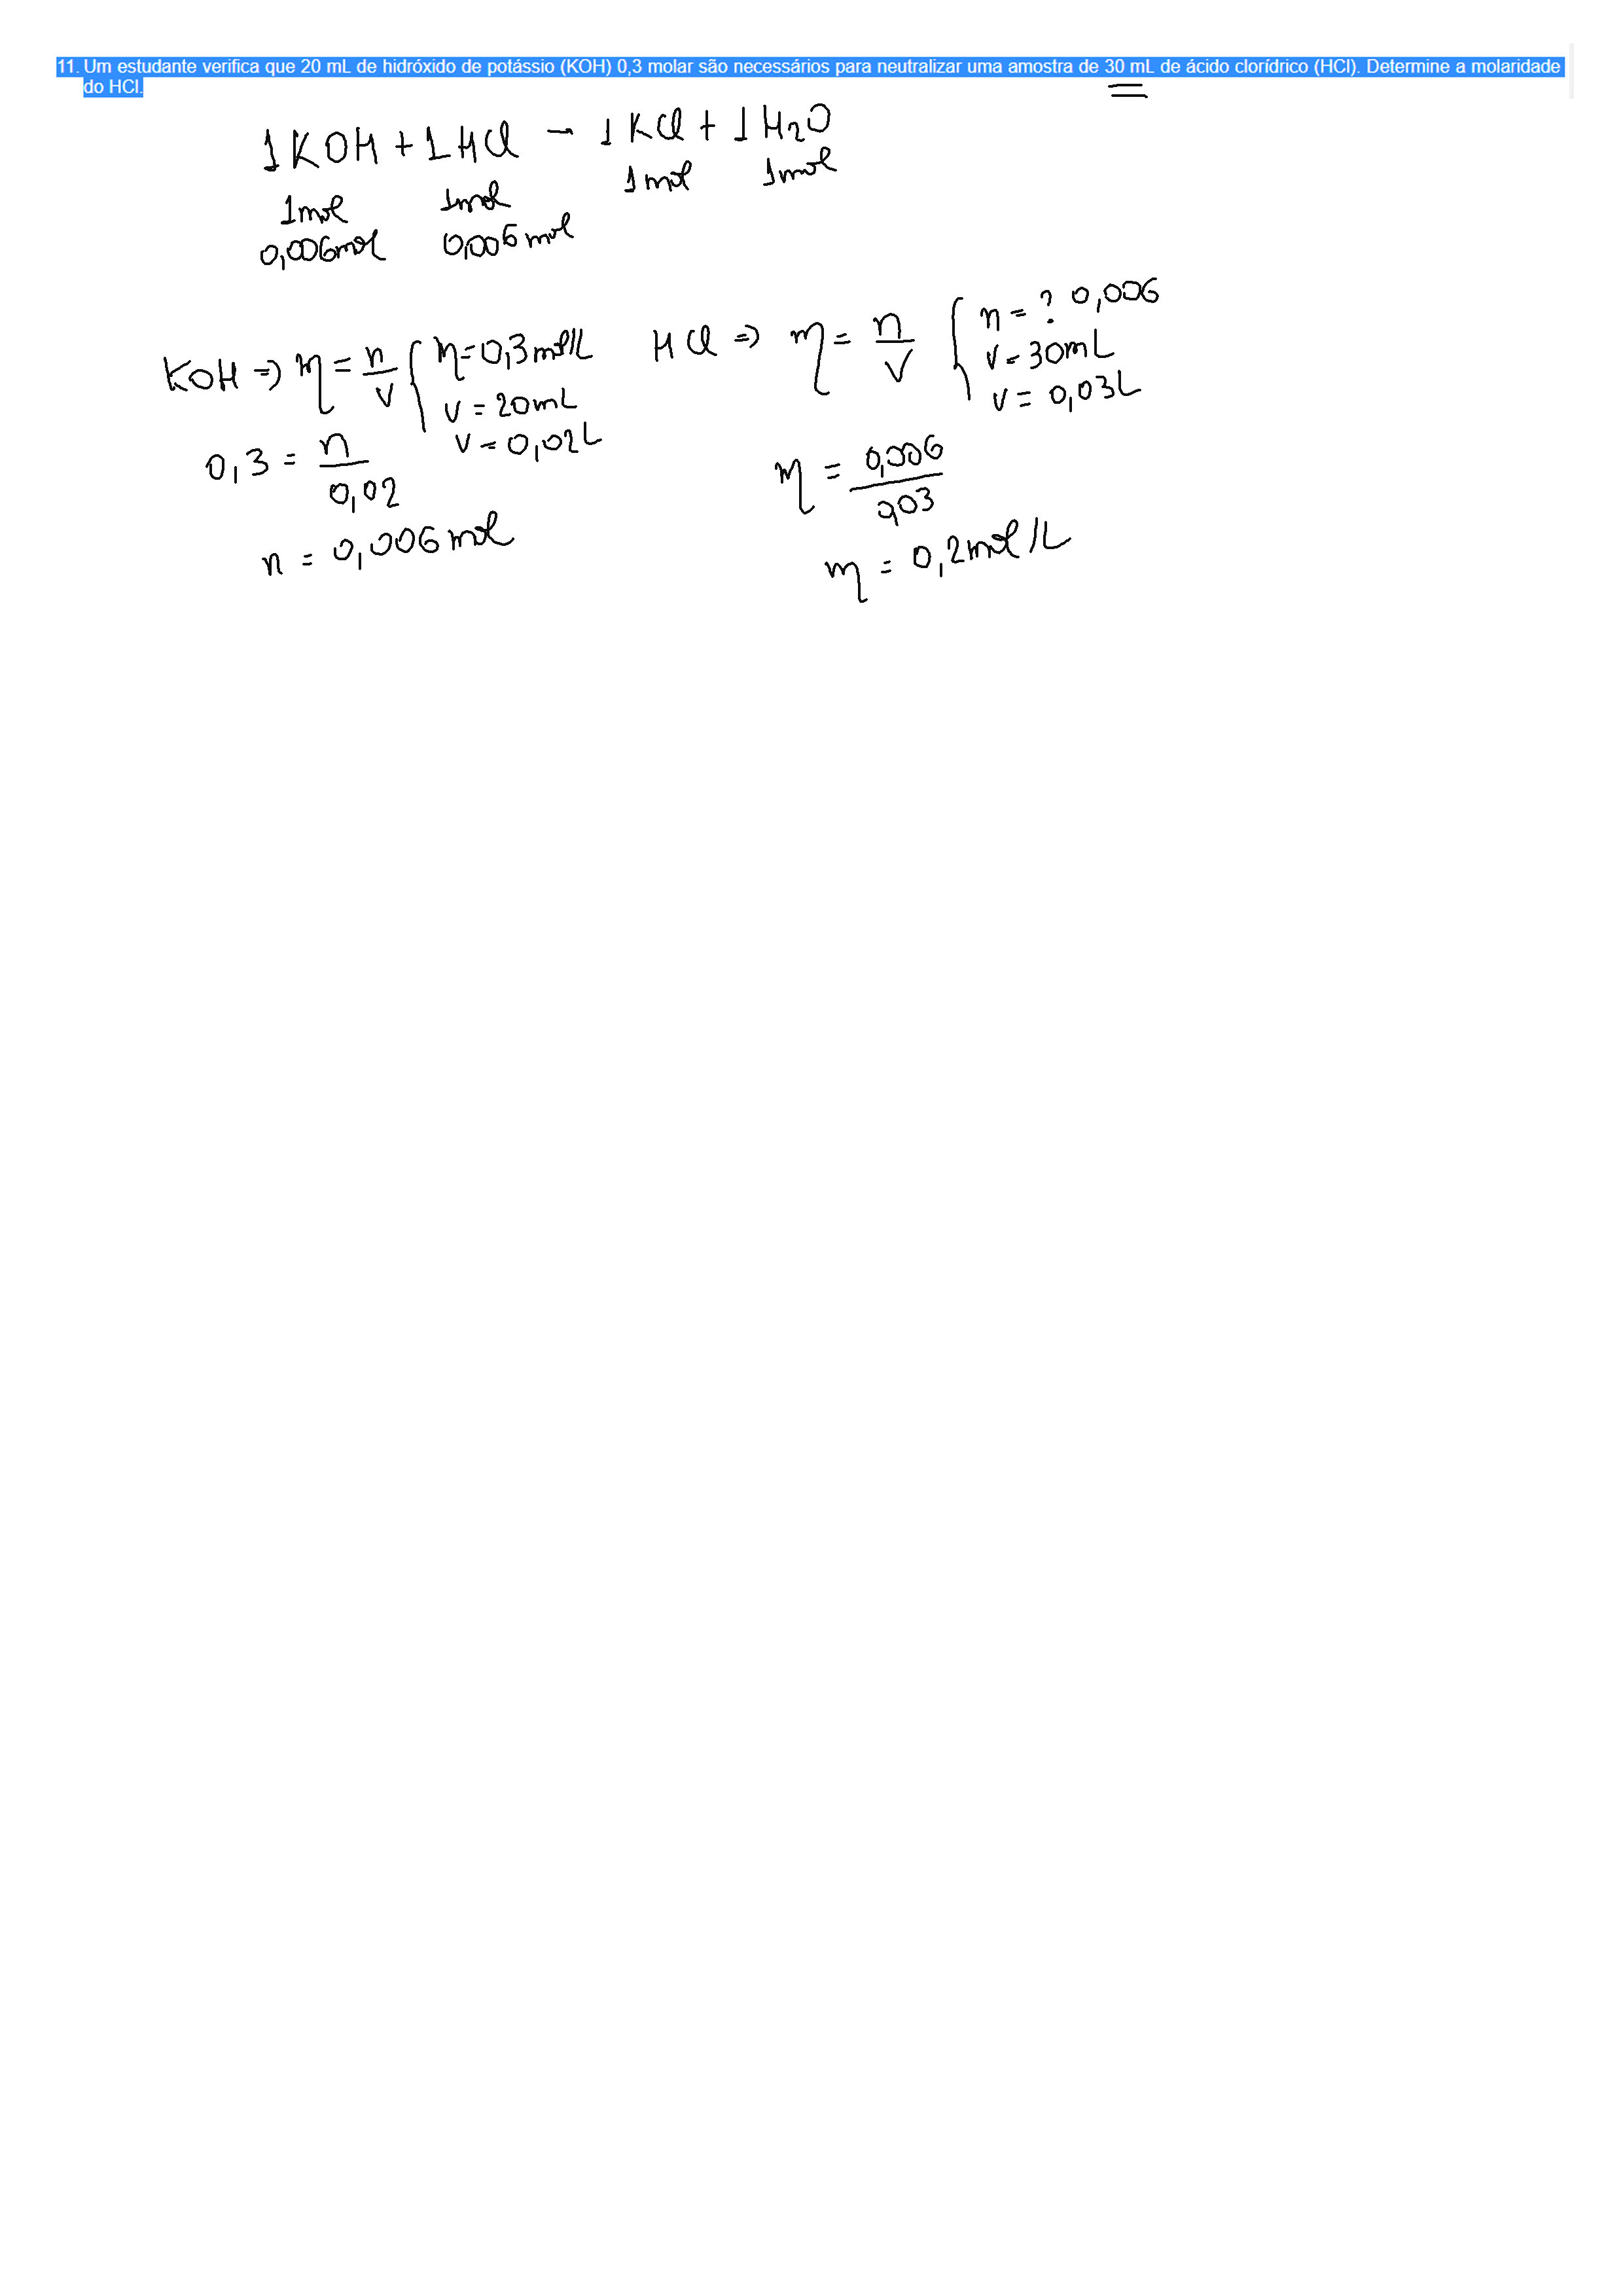 11. Um estudante verifica que 20 mL de hidróxido de potássio (KOH) 0,3 molar são necessários para neutralizar uma amostra de 30 mL de ácido clorídrico (HCl). Determine a molaridade
do HCl.
1KOH + 1HCl → 1KCl + 1H2O
1mol 1mol 1mol 1mol
0,006mol 0,006mol
KOH ⇒ M = n/V { M = 0,3mol/L
V = 20mL
V = 0,02L
0,3 = n/0,02
n = 0,006mol
HCl ⇒ M = n/V { n = ? 0,006
V = 30mL
V = 0,03L
M = 0,006/0,03
M = 0,2mol/L